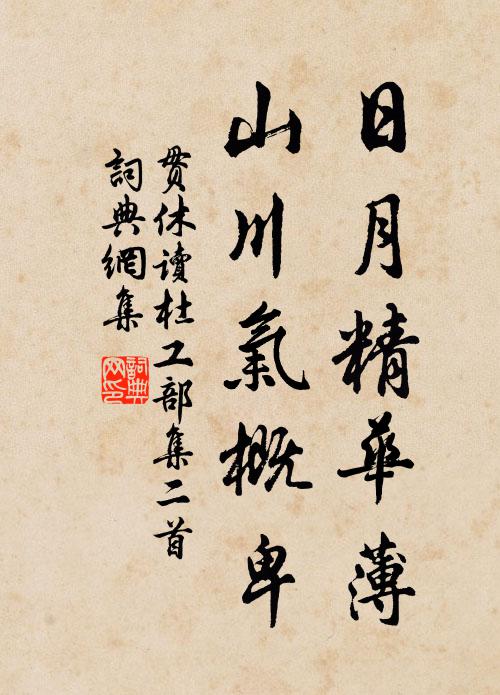 日月精華薄
山川氣概卑
貫休讀杜工部集二首
詞典網集
詞典
网印